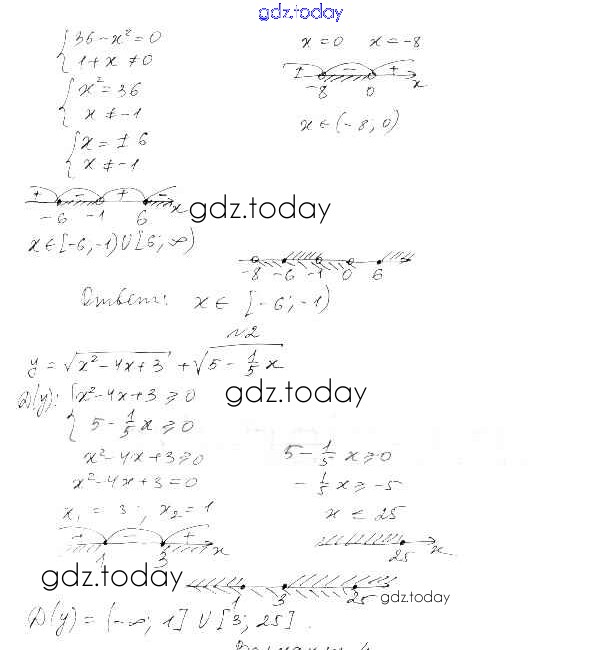 gdz.today
36 - x² = 0
1 + x ≠ 0
x² = 36
x ≠ -1
x = ± 6
x ≠ -1
+ - + -
-6 -1 6 x
x ∈ [-6, -1) ∪ [6; ∞)
x = 0 x = -8
+ - +
-8 0 x
x ∈ (-8; 0)
gdz.today
-8 -6 -1 0 6
Ответ: x ∈ [-6; -1)
№2
y = √x² - 4x + 3 + √5 - 1/5 x
D(y): { x² - 4x + 3 ⩾ 0
5 - 1/5 x ⩾ 0
gdz.today
x² - 4x + 3 ⩾ 0
x² - 4x + 3 = 0
x₁ = 3; x₂ = 1
+ - +
1 3 x
5 - 1/5 x ⩾ 0
- 1/5 x ⩾ -5
x ⩽ 25
25 x
gdz.today
1 3 25
gdz.today
D(y) = (-∞; 1] ∪ [3; 25].